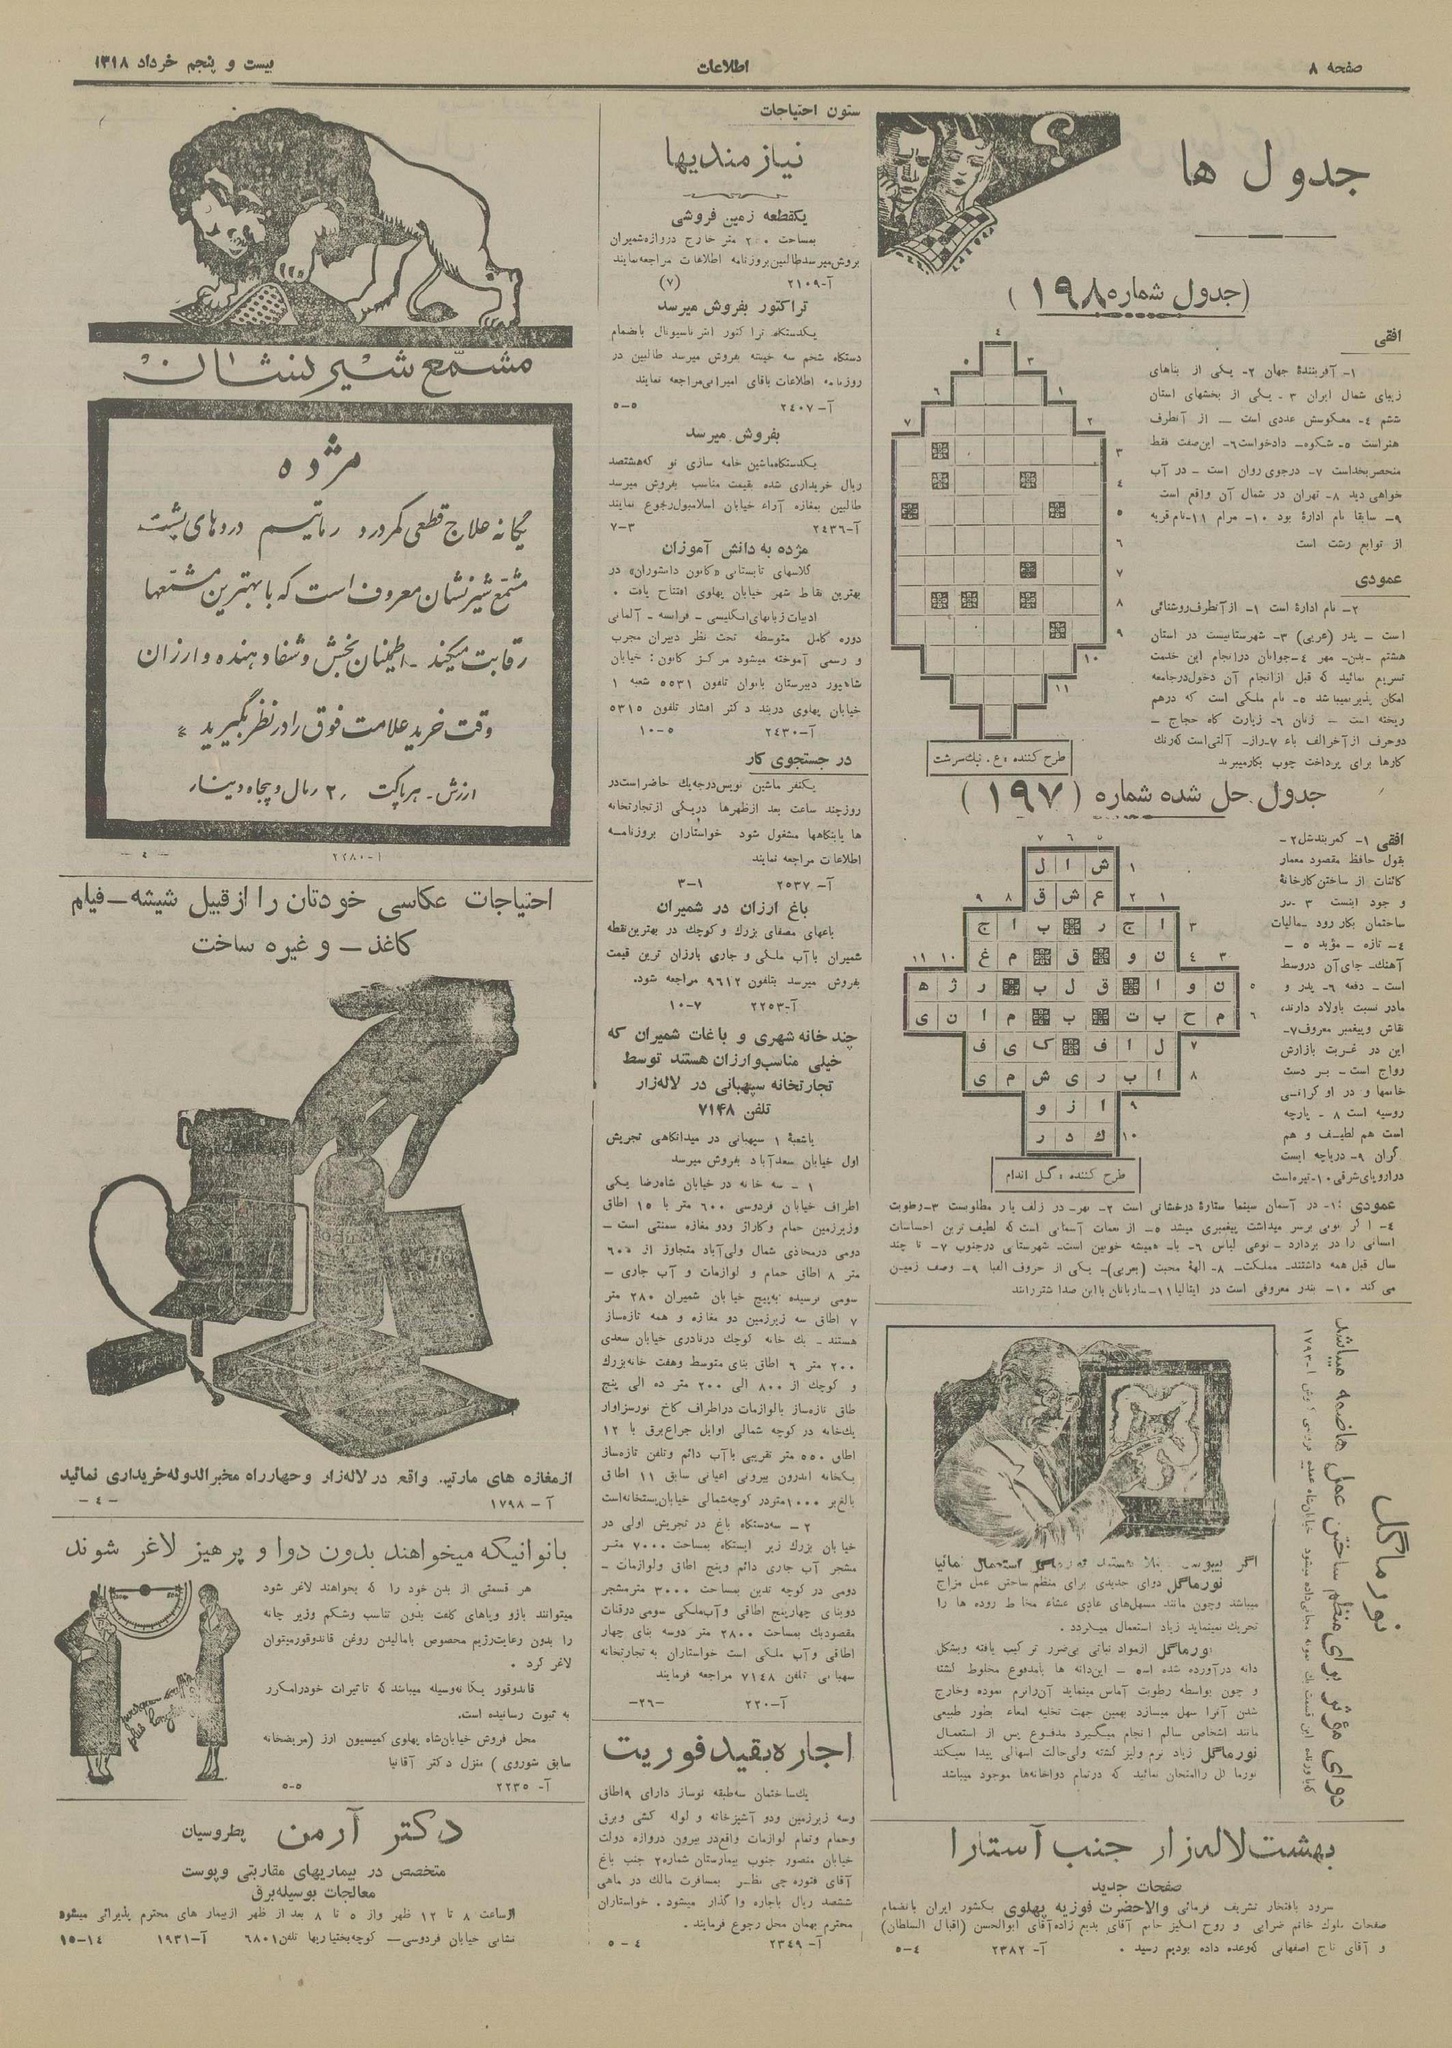 صفحه ۸
اطلاعات
بیست و پنجم خرداد ۱۳۱۸
جدول ها
(جدول شماره ۱۹۸)
افقی
۱- آفرینندهٔ جهان ۲- یکی از بناهای
زیبای شمال ایران ۳- یکی از بخشهای استان
ششم ٤- معکوسش عددی است — از آنطرف
هنراست ٥- شکوه- دادخواست ٦- این‌صفت فقط
منحصربخداست ۷- درجوی روان است - در آب
خواهی دید ۸- تهران در شمال آن واقع است
۹- سابقا نام ادارهٔ بود ۱۰- مرام ۱۱-نام‌قریه
از توابع رشت است
عمودی
۲- نام ادارهٔ است ۱- ازآنطرف‌روشنائی
است - پدر (عربی) ۳- شهرستانیست در استان
هشتم -بدن- مهر ٤-جوانان درانجام این خدمت
تسریع نمائید که قبل ازانجام آن دخول‌درجامعه
امکان پذیرنمیباشد ٥- نام ملکی است که درهم
ریخته است - زنان ٦- زیارت گاه حجاج -
دوحرف ازآخرالف باء ۷-راز- آلتی‌است که‌رنك
کارها برای پرداخت چوب بکارمیبرند
طرح کننده ؛ع. نیك‌سرشت
جدول حل شده شماره (۱۹۷)
افقی ۱- کمربندشل ۲-
بقول حافظ مقصود معمار
کائنات از ساختن کارخانهٔ
و جود اینست ۳ -در
ساختمان بکار رود -مالیات
٤- تازه - مؤبد ٥ -
آهنك- جای‌آن دروسط
است - دفعه ٦- پدر و
مادر نسبت باولاد دارند،
نقاش وپیغمبر معروف ۷-
این در غربت بازارش
رواج است- بر دست
خانمها و در اوکرانی
روسیه است ۸ - پارچه
است هم لطیف و هم
گران ۹- دریاچه ایست
دراروپای‌شرقی ۱۰-تیره‌است
ش ا ل
ع ش ق
ا ج ر ب ا ج
ن و ق م غ
ن و ا ق ل ب ر ژ ه
م ح ب ت ب م ا ن ی
ل ا ف ک ی ف
ا ب ر ی ش م ی
ا ز و
ك د ر
طرح کننده ؛ گل اندام
عمودی ۱- در آسمان سینما ستارهٔ درخشانی است ۲- نهر- در زلف یار مطلوبست ۳-رطوبت
انسانی را در بردارد - نوعی لباس ٦- با- همیشه خونین است- شهرستانی درجنوب ۷- تا چند
سال قبل همه داشتند- مملکت- ۸- الههٔ محبت (بعربی)- یکی از حروف الفبا ۹- وصف زمین
می کند ۱۰- بندر معروفی است در ایتالیا ۱۱-ساربانان بااین صدا شتررانند
نورماگل
دوای مؤثر برای منظم ساختن عمل هاضمه میباشد
نورماگل دوای جدیدی برای منظم ساختن عمل مزاج
میباشد وچون مانند مسهل‌های عادی غشاء مخاط روده ها را
تحریك نمینماید زیاد استعمال میگردد.
نورماگل ازمواد نباتی بی‌ضرر ترکیب یافته وبشکل
دانه درآورده شده است - این‌دانه ها بامدفوع مخلوط گشته
و چون بواسطه رطوبت آماس مینماید آن‌رانرم نموده وخارج
شدن آنرا سهل میسازد بهمین جهت تخلیه امعاء بطور طبیعی
مانند اشخاص سالم انجام میگیرد مدفوع پس از استعمال
نورماگل زیاد نرم ولیز گشته ولی‌حالت اسهالی پیدا نمیکند
نورماگل راامتحان نمائید که درتمام دواخانه‌ها موجود میباشد
بهشت لاله‌زار جنب آستارا
صفحات جدید
سرود بافتخار تشریف فرمائی والاحضرت فوزیه پهلوی بکشور ایران بانضمام
صفحات ملوك خانم ضرابی و روح انگیز خانم آقای بدیع زاده‌آقای ابوالحسن (اقبال السلطان)
و آقای تاج اصفهانی که‌وعده داده بودیم رسید .
آ- ۲۳۸۲
٤-٥
ستون احتیاجات
نیازمندیها
یکقطعه زمین فروشی
بمساحت ۲۰۰ متر خارج دروازه‌شمیران
بروش‌میرسدطالبین‌بروزنامه اطلاعات مراجعه‌نمایند
آ-۲۱۰۹
(۷)
تراکتور بفروش میرسد
یکدستگاه تراکتور انترناسیونال بانضمام
دستگاه شخم سه خیشه بفروش میرسد طالبین در
روزنامه اطلاعات باقای امیرانی‌مراجعه نمایند
آ- ۲٤۰۷
٥-٥
بفروش میرسد
یکدستگاه‌ماشین خامه سازی نو که‌هشتصد
ریال خریداری شده بقیمت مناسب بفروش میرسد
طالبین بمغازه آراء خیابان اسلامبول‌رجوع نمایند
آ-۲٤۳٦
۳-۷
مژده به دانش آموزان
کلاسهای تابستانی «کانون دانشوران» در
بهترین نقاط شهر خیابان پهلوی افتتاح یافت .
ادبیات زبانهای‌انگلیسی - فرانسه - آلمانی
دوره کامل متوسطه تحت نظر دبیران مجرب
و رسمی آموخته میشود مرکز کانون: خیابان
شاهپور دبیرستان بانوان تلفون ٥٥۳۱ شعبه ۱
خیابان پهلوی دربند دکتر افشار تلفون ٥۳۱٥
آ-۲٤۳۰
٥-۱۰
در جستجوی کار
یکنفر ماشین نویس‌درجه‌یك حاضراست‌در
روزچند ساعت بعد ازظهرها دریکی ازتجارتخانه
ها یابنگاهها مشغول شود خواستاران بروزنامه
اطلاعات مراجعه نمایند
آ- ۲٥۳۷
۱-۳
باغ ارزان در شمیران
باغهای مصفای بزرك و کوچك در بهترین‌نقطه
شمیران باآب ملکی و جاری بارزان ترین قیمت
بفروش میرسد بتلفون ۹٦۱۲ مراجعه شود.
آ-۲۲٥۳
۷-۱۰
چند خانه شهری و باغات شمیران که
خیلی مناسب‌وارزان هستند توسط
تجارتخانه سیهبانی در لاله‌زار
تلفن ۷۱٤۸
باشعبهٔ ۱ سیهبانی در میدانگاهی تجریش
اول خیابان سعدآباد بفروش میرسد
۱ - سه خانه در خیابان شاه‌رضا یکی
اطراف خیابان فردوسی ٦۰۰ متر با ۱٥ اطاق
وزیرزمین حمام وگاراژ ودو مغازه سمنتی است -
دومی درمحاذی شمال ولی‌آباد متجاوز از ٦۰۰
متر ۸ اطاق حمام و لوازمات و آب جاری -
سومی نرسیده به‌پیچ خیابان شمیران ۲۸۰ متر
۷ اطاق سه زیرزمین دو مغازه و همه تازه‌ساز
هستند - یك خانه کوچك درنادری خیابان سعدی
۲۰۰ متر ٦ اطاق بنای متوسط وهفت خانه‌بزرك
و کوچك از ۸۰۰ الی ۲۰۰ متر ده الی پنج
طاق تازه‌ساز بالوازمات دراطراف کاخ نورسزاوار
یك‌خانه در کوچه شمالی اوایل چراغ‌برق با ۱۲
اطاق ٥٥۰ متر تقریبی باآب دائم وتلفن تازه‌ساز
یکخانه اندرون بیرونی اعیانی سابق ۱۱ اطاق
بالغ‌بر ۱۰۰۰متردر کوچه‌شمالی خیابان‌پستخانه‌است
۲ - سه‌دستگاه باغ در تجریش اولی در
خیابان بزرك زیر ایستگاه بمساحت ۷۰۰۰ متر
مشجر آب جاری دائم وپنج اطاق ولوازمات -
دومی در کوچه تدین بمساحت ۳۰۰۰ مترمشجر
دوبنای چهارپنج اطاقی وآب‌ملکی سومی درقنات
مقصودبك بمساحت ۲۸۰۰ متر دوسه بنای چهار
اطاقی وآب ملکی است خواستاران به تجارتخانه
سیهبانی تلفن ۷۱٤۸ مراجعه فرمایند
آ-۲۲۰
-۲٦-
اجاره‌بقیدفوریت
یك‌ساختمان سه‌طبقه نوساز دارای ۹اطاق
وسه زیرزمین ودو آشپزخانه و لوله کشی وبرق
وحمام وتمام لوازمات واقع‌در بیرون دروازه دولت
خیابان منصور جنوب بیمارستان شماره۲ جنب باغ
ششصد ریال باجاره واگذار میشود. خواستاران
محترم بهمان محل رجوع فرمایند .
آ- ۲۳٤۹
٤-٥
مشمّع شیر نشان
مژده
یگانه علاج قطعی کمردرد رماتیسم دردهای پشت
مشمّع شیرنشان معروف است که با بهترین مشمّعها
رقابت میکند - اطمینان بخش و شفا دهنده و ارزان
وقت خرید علامت فوق را در نظر بگیرید
ارزش - هر پاکت ۲ ریال و پنجاه دینار
آ-۲۲۸۰
-٤-
احتیاجات عکاسی خودتان را ازقبیل شیشه-فیلم
کاغذ- و غیره ساخت
ازمغازه های مارتین واقع در لاله‌زار وچهارراه مخبرالدوله‌خریداری نمائید
آ- ۱۷۹۸
-٤-
بانوانیکه میخواهند بدون دوا و پرهیز لاغر شوند
هر قسمتی از بدن خود را که بخواهند لاغر شود
میتوانند بازو وپاهای کلفت بدون تناسب وشکم وزیر چانه
را بدون رعایت‌رژیم مخصوص بامالیدن روغن قاندوقورمیتوان
لاغر کرد .
قاندوقور یگانه‌وسیله میباشدکه تاثیرات خودرامکرر
به ثبوت رسانیده است.
محل فروش خیابان‌شاه پهلوی کمیسیون ارز (مریضخانه
سابق شوروی) منزل دکتر آقانیا
آ- ۲۲۳٥
٥-٥
دکتر آرمن پطروسیان
متخصص در بیماریهای مقاربتی وپوست
معالجات بوسیله‌برق
ازساعت ۸ تا ۱۲ ظهر واز ٥ تا ۸ بعد از ظهر ازبیمار های محترم پذیرائی میشود
نشانی خیابان فردوسی- کوچه‌بختیاریها تلفن ٦۸۰۱
آ-۱۹۳۱
۱٤-۱٥